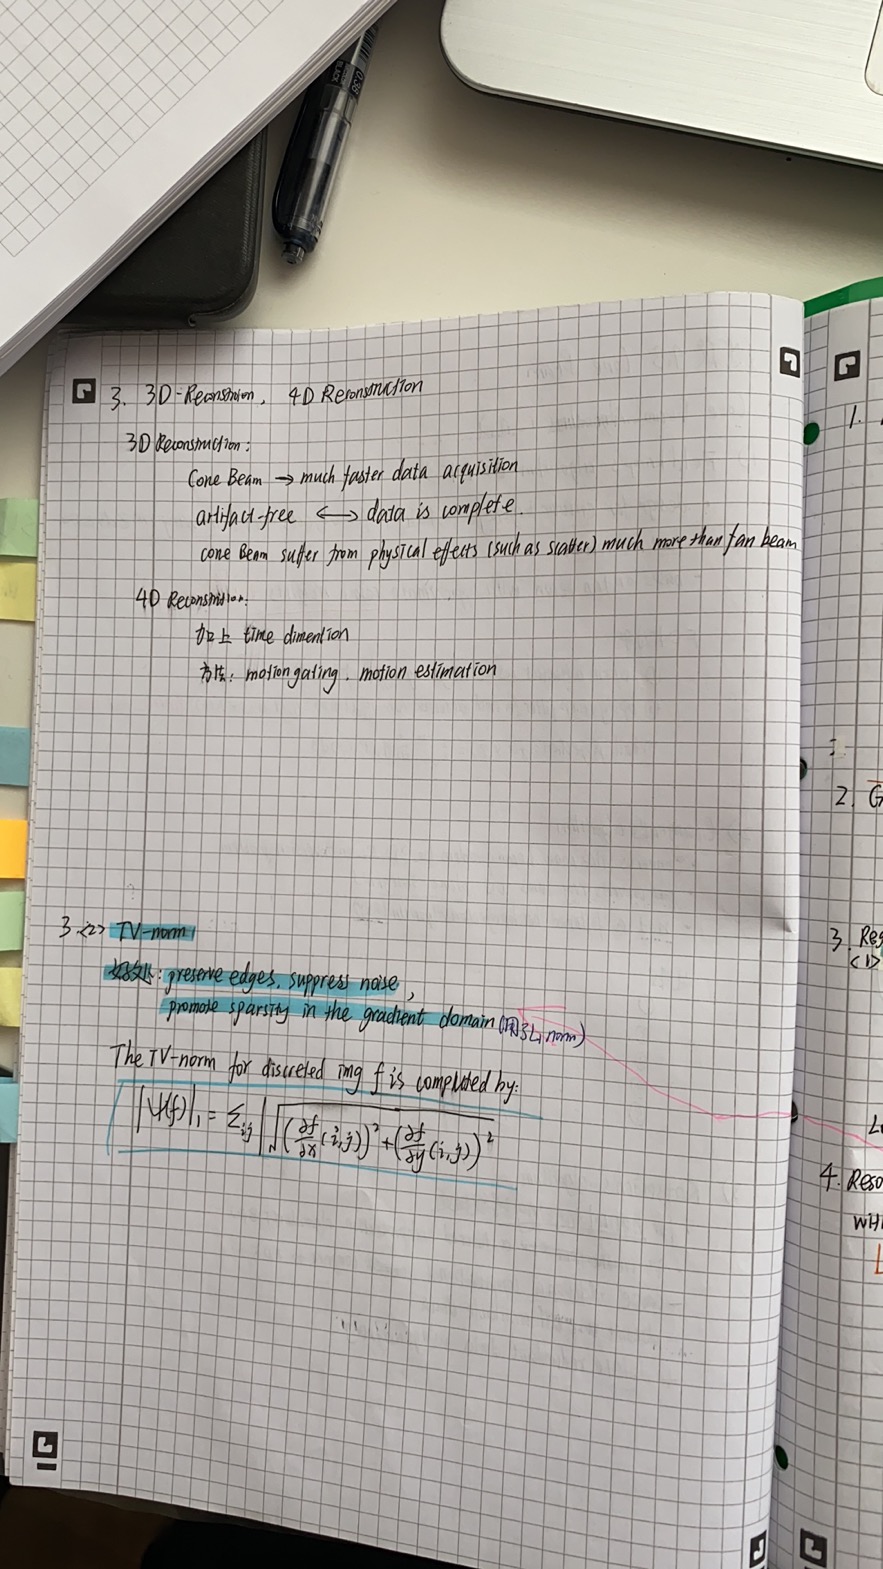 3. 3D-Reconstruion, 4D Reconstruction
3D Reconstruction:
Cone Beam → much faster data acquisition
artifact-free ⟷ data is complete.
cone Beam suffer from physical effects (such as scatter) much more than fan beam
4D Reconstruction:
加上 time dimention
方法: motion gating. motion estimation
3.<2> TV-norm
好处: preserve edges. suppress noise,
promote sparsity in the gradient domain (用了L₁ norm)
The TV-norm for discreted img f is computed by:
|Ψ(f)|₁ = Σᵢⱼ |√((∂f/∂x (i,j))² + (∂f/∂y (i,j))²
1.
2. G
3. Res
<1>
4. Reso
WH
BLACK